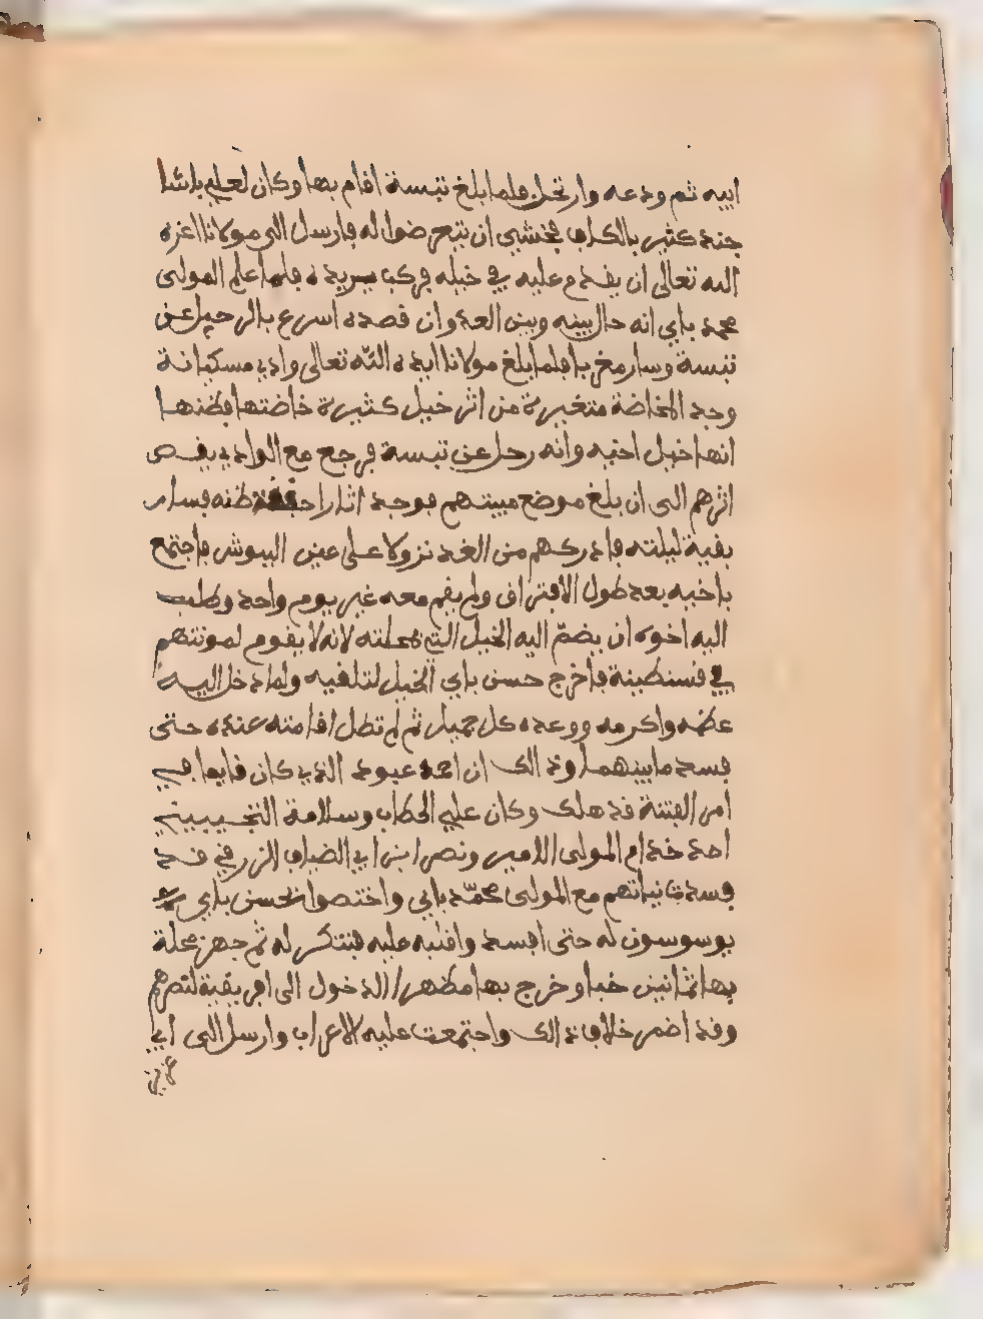 ابيه ثم ودعه وارتحل فلما بلغ تبسة اقام بها وكان لعلي باشا
جند كثير بالكاف فخشي ان يتعرضوا له فارسل الى مولانا اعزه
الله تعالى ان يقدم عليه في خيله فركب يريده فلما علم المولى
محمد باي انه حال بينه وبين العدو ان قصده اسرع بالرحيل عن
تبسة وسار مغربا فلما بلغ مولانا ايده الله تعالى وادي مسكيانة
وجد المخاضة متغيرة من اثر خيل كثيرة خاضتها فظنها
انها خيل اخيه وانه رحل عن تبسة فرجع مع الوادي يقص
اثرهم الى ان بلغ موضع مبيتهم فوجد اثارا حققت ظنه فسار
بقية ليلته فادركهم من الغد نزولا على عين الببوش فاجتمع
باخيه بعد طول الافتراق ولم يقم معه غير يوم واحد وطلب
اليه اخوه ان يضم اليه الخيل التي معلته لانه لا يقوم لمونتهم
في قسنطينة فاخرج حسن باي الخيل لتلقيه ولما دخل اليه
عظمه واكرمه ووعده كل جميل ثم لم تطل اقامته عنده حتى
فسد ما بينهما وذالك ان احمد عبود الذي كان قايما في
امر الفتنة قد هلك وكان علي الحطاب وسلامة التجيبيني
احد خدام المولى الامير ونصر ابن ابي الضياف الزرقي قد
فسدت نياتهم مع المولى محمد باي واختصوا بحسن باي
يوسوسون له حتى افسد واقلبه عليه فتنكر له ثم جهز محلة
بها ثمانين خبا وخرج بها مظهرا الدخول الى افريقية لنصرهم
وقد اضمر خلاف ذالك واجتمعت عليه الاعراب وارسل الى ابي
عزيز